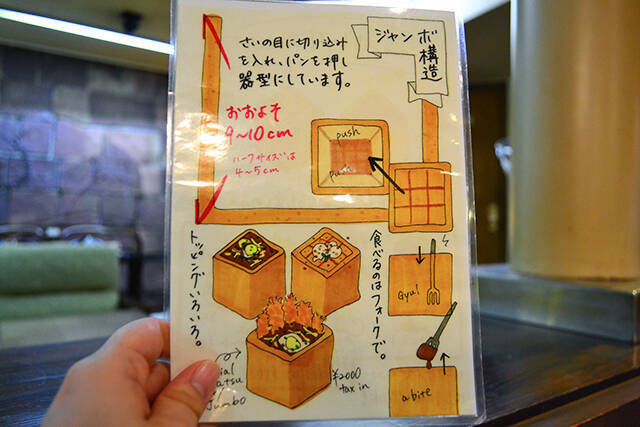 ジャンボ構造
さいの目に切り込み
を入れ、パンを押し
器型にしています。
おおよそ
9~10cm
ハーフサイズは
4~5cm
push
push
トッピングいろいろ。
食べるのはフォークで。
Gyu!
a bite
¥2000
tax in
Jumbo